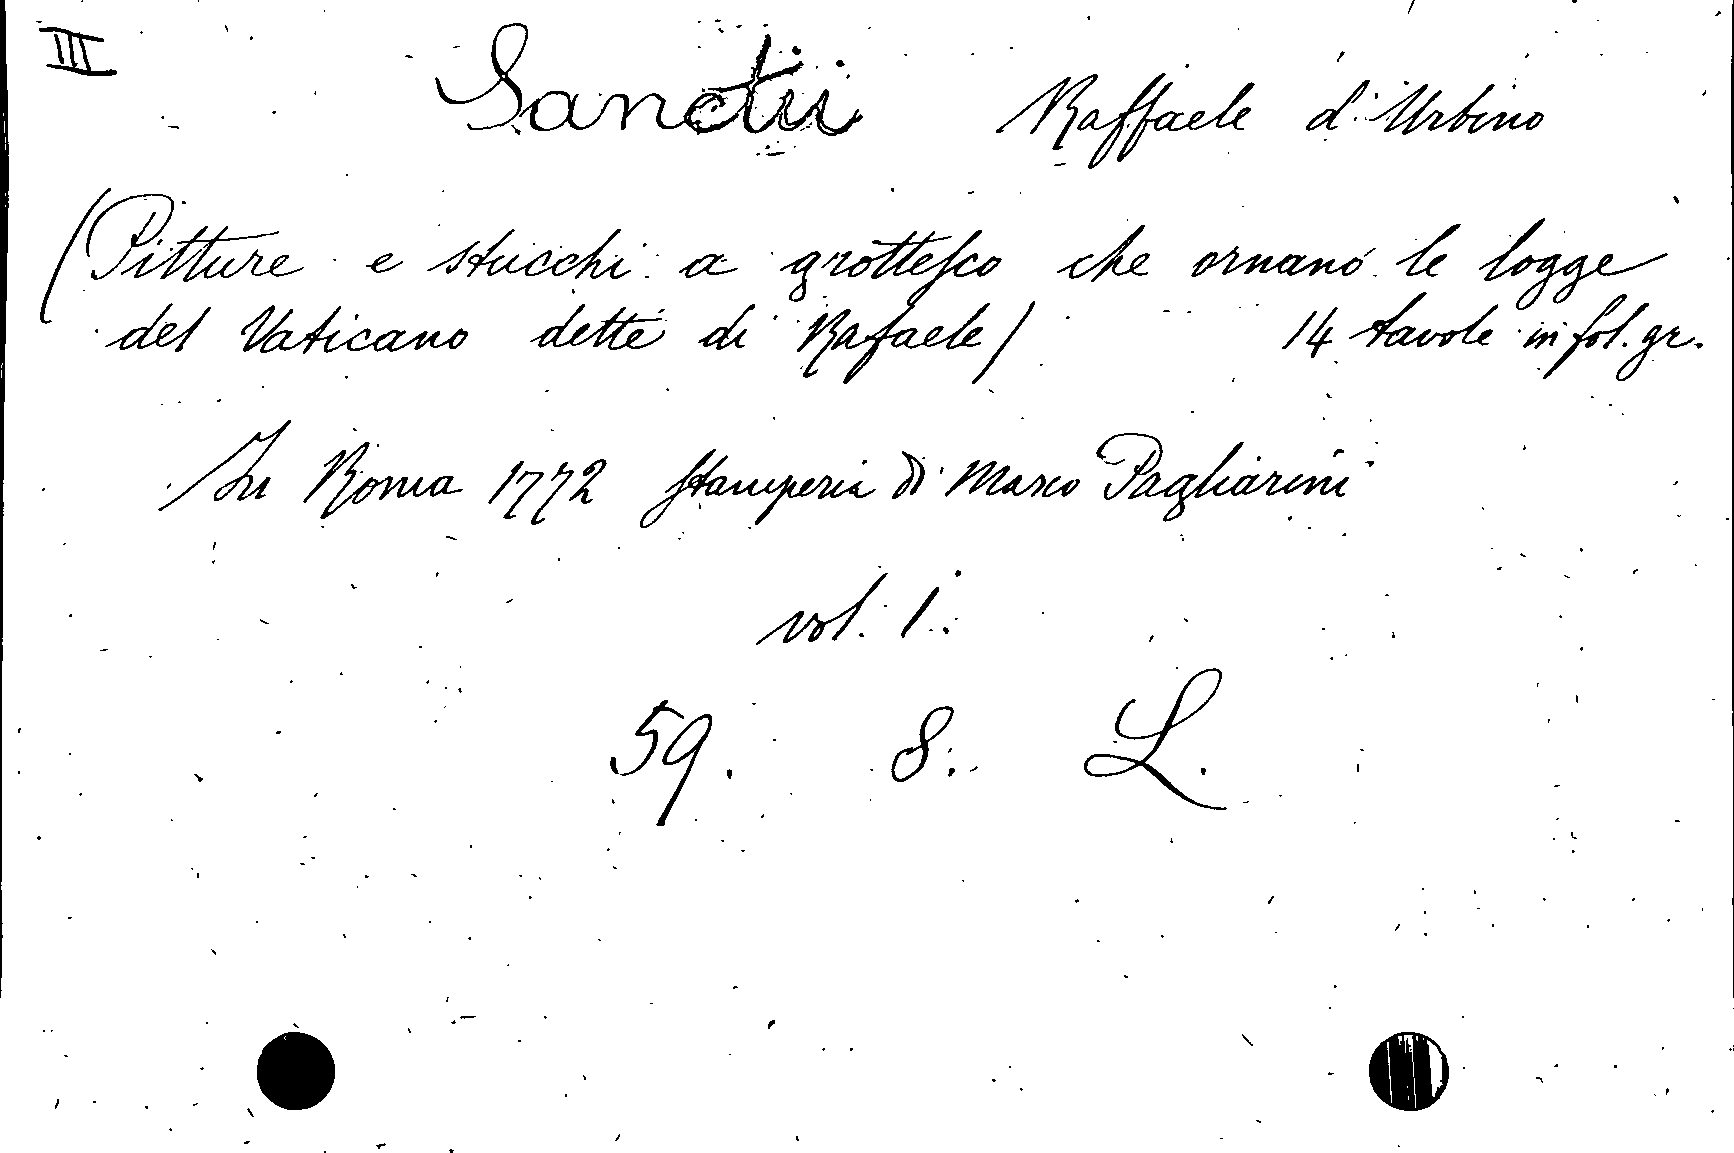 III Sanctii Raffaele d'Urbino
(Pitture e stucchi a grottesco che ornano le logge
del Vaticano dette di Rafaele) 14 tavole in fol. gr.
In Roma 1772 stamperia di Marco Pagliarini
vol. 1.
59. 8. L.